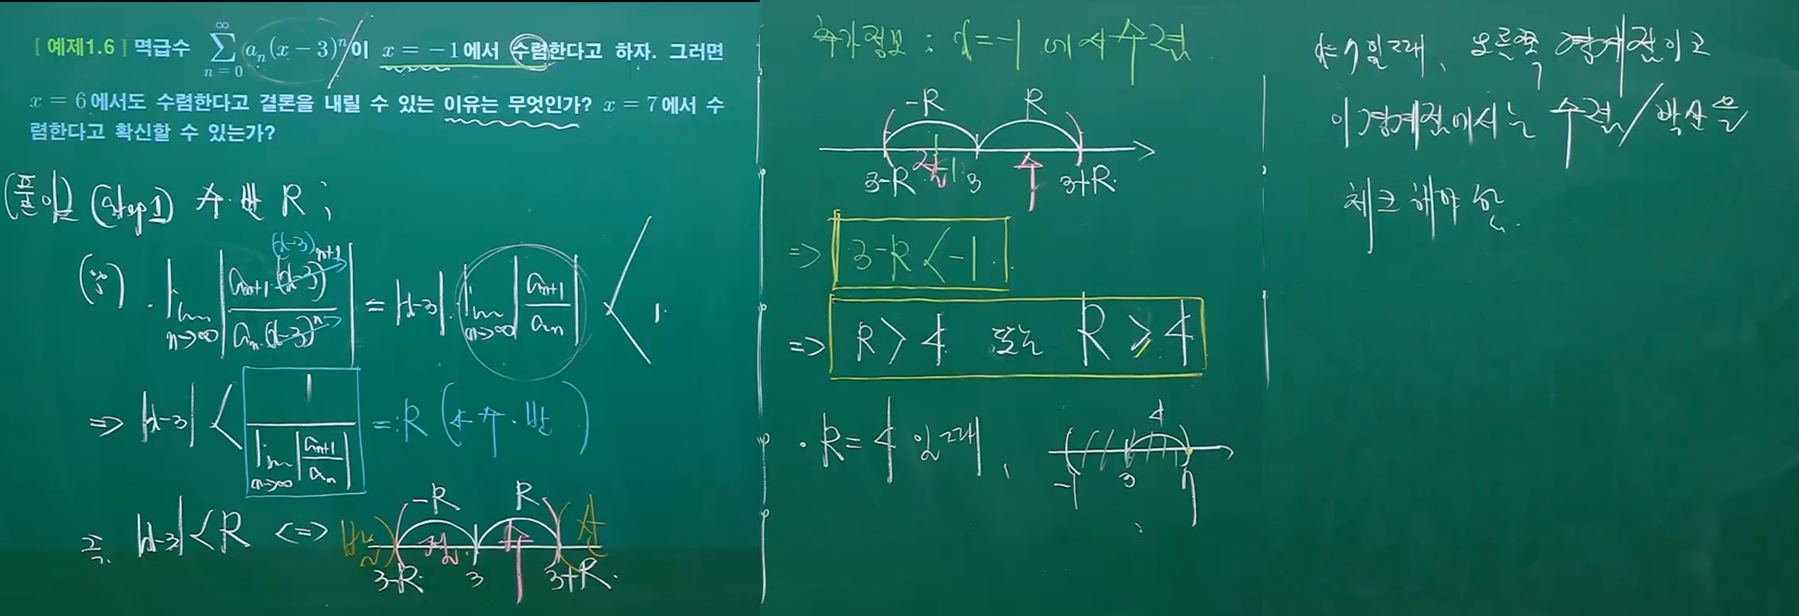 [예제1.6] 멱급수 \sum_{n=0}^{\infty} a_n(x-3)^n 이 x = -1에서 수렴한다고 하자. 그러면
x = 6에서도 수렴한다고 결론을 내릴 수 있는 이유는 무엇인가? x = 7에서 수
렴한다고 확신할 수 있는가?
(풀이) (Step1) 수.반 R ;
(i) · \lim_{n→∞} | a_{n+1}·(x-3)^{n+1} / a_n·(x-3)^n | = |x-3|· \lim_{n→∞} | a_{n+1} / a_n | < 1.
(x-3)
⇒ |x-3| < 1 / \lim_{n→∞} | a_{n+1} / a_n | =: R (수.반)
즉, |x-3| < R <=>
-R R
3-R 3 3+R.
추가정보 : x=-1 에서 수렴
-R R
3-R -1 3 3+R.
⇒ 3-R < -1.
⇒ R > 4 또는 R ≥ 4
· R = 4 일 때,
4
-1 3 7
x=7일 때, 오른쪽 경계점이고
이 경계점에서는 수렴/발산을
체크해야 함.